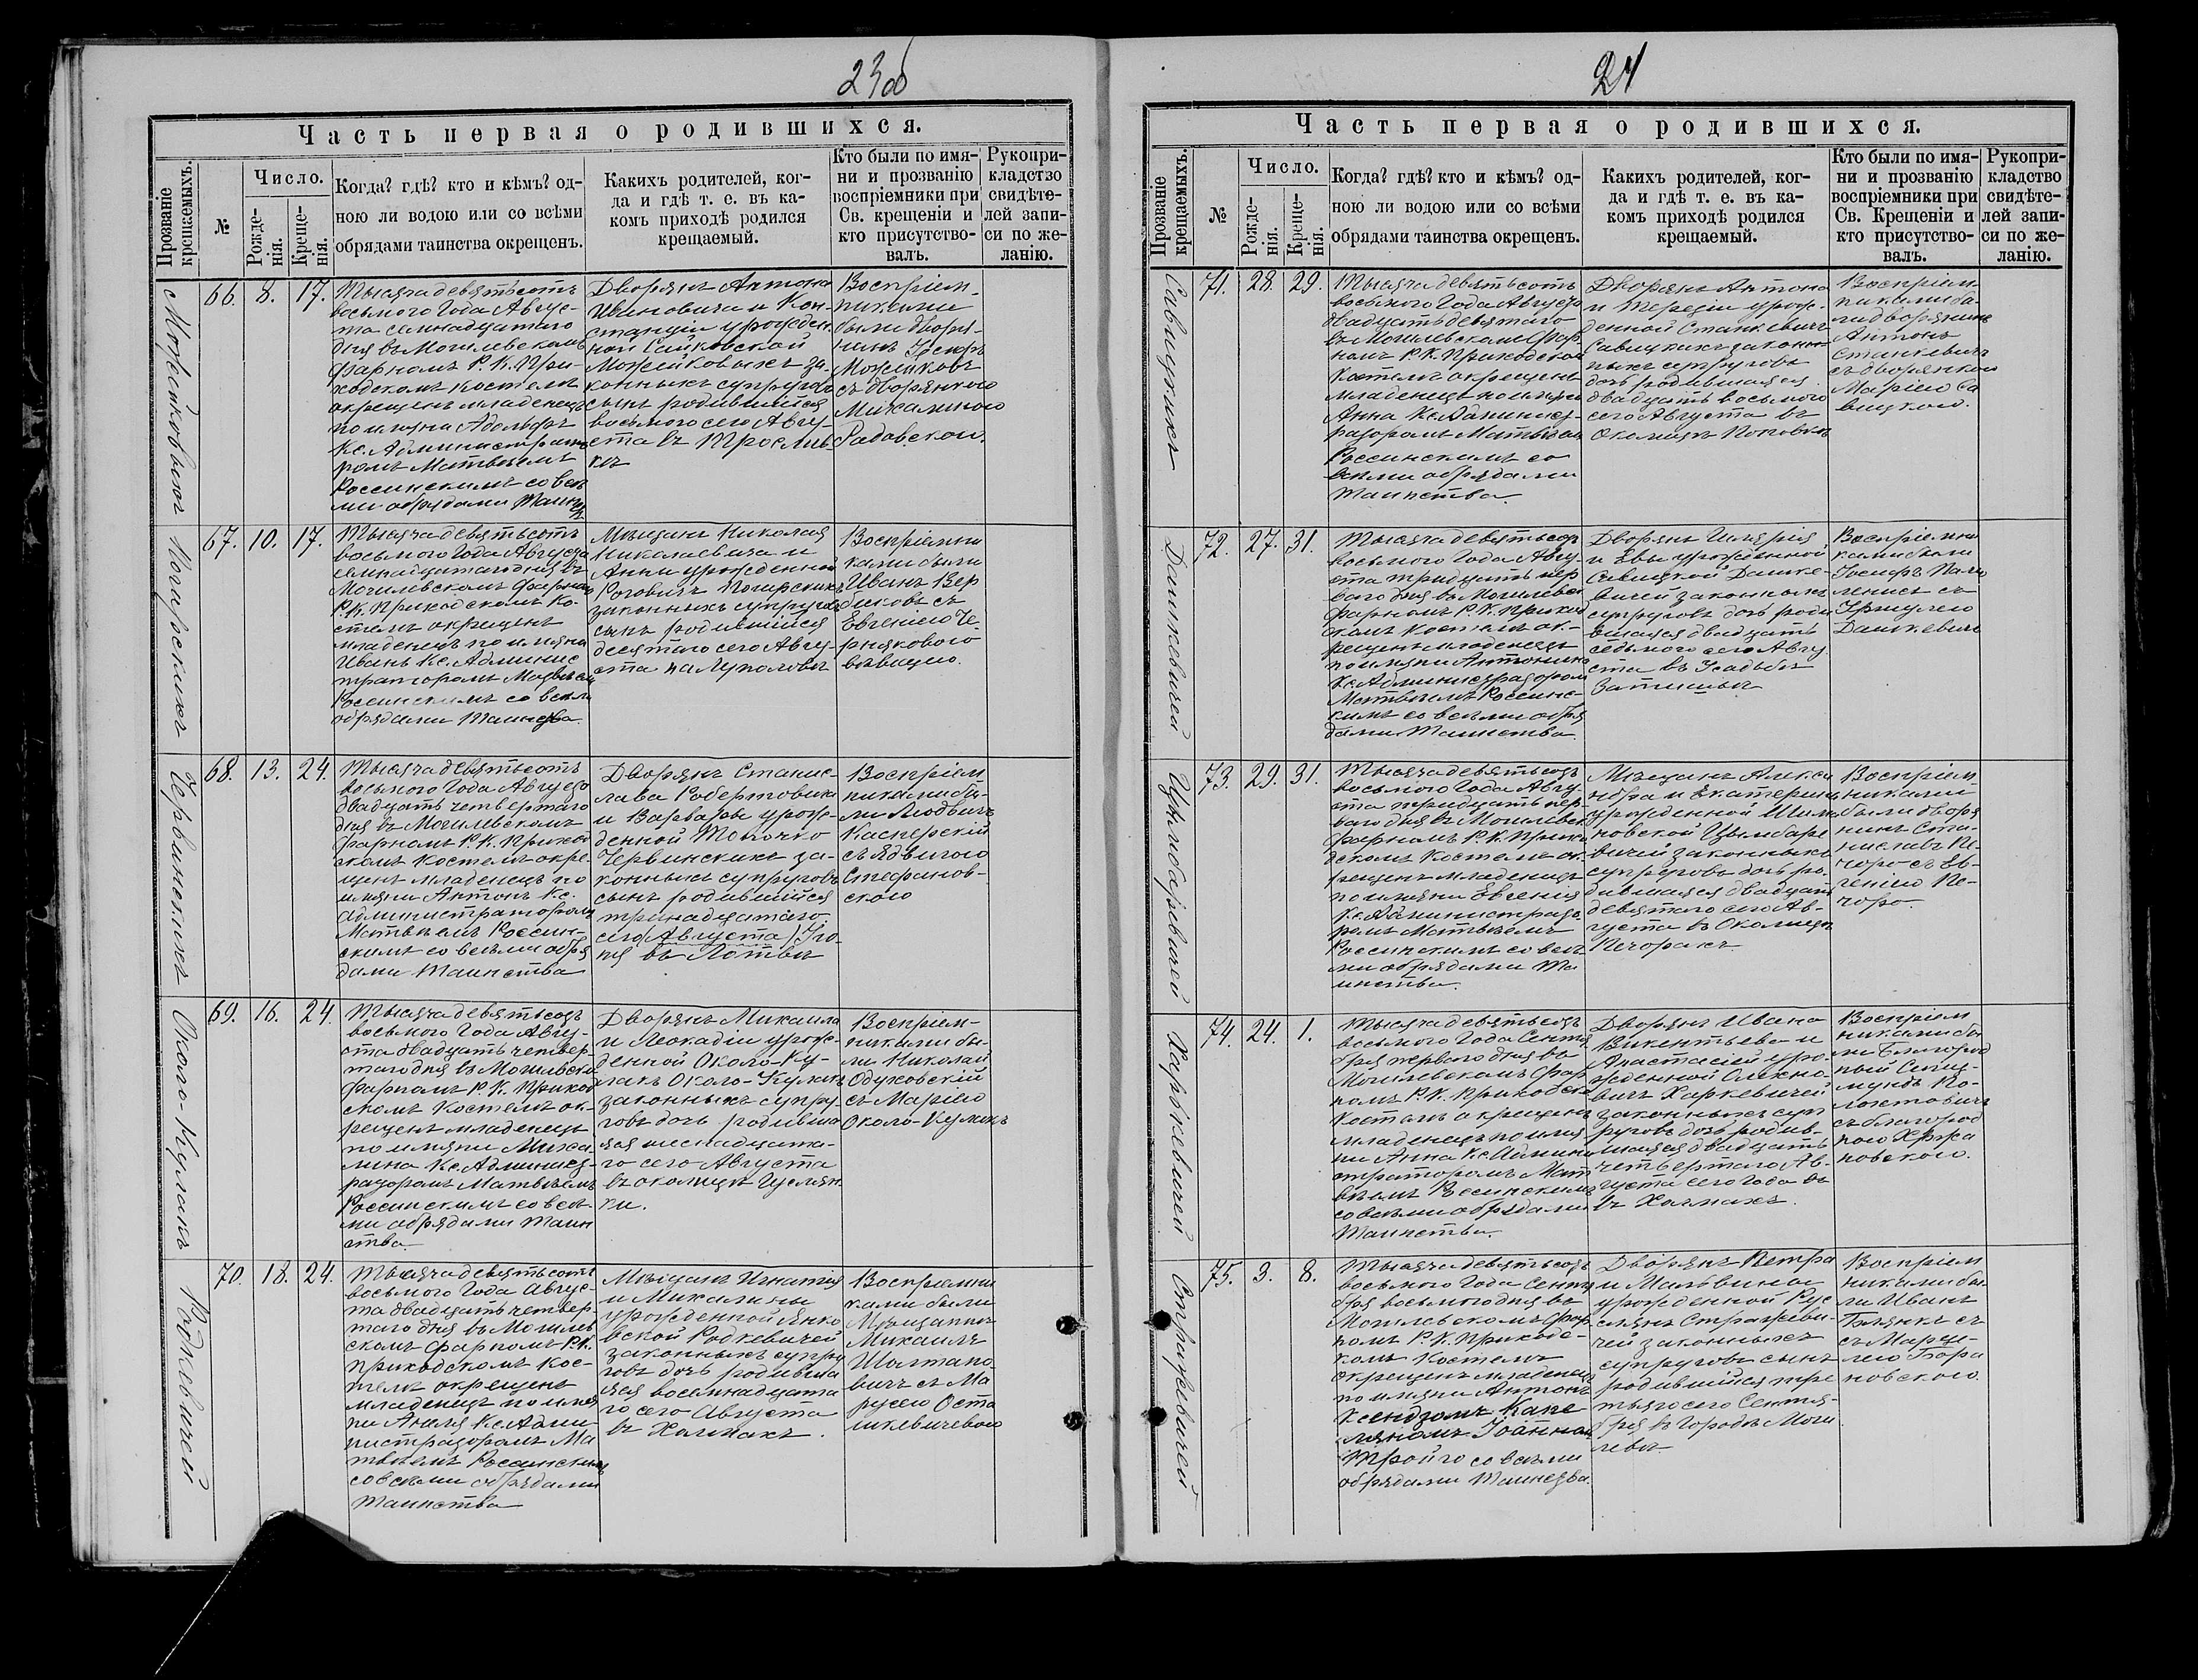 23об
Часть первая о родившихся.
Прозваніе крещаемыхъ.
№
Число.
Рожде-
нія.
Креще-
нія.
Когда? гдѣ? кто и кѣмъ? од-
ною ли водою или со всѣми
обрядами таинства окрещенъ.
Какихъ родителей, ког-
да и гдѣ т. е. въ ка-
комъ приходѣ родился
крещаемый.
Кто были по имя-
ни и прозванію
воспріемники при
Св. крещеніи и
кто присутство-
валъ.
Рукопри-
кладство
свидѣте-
лей запи-
си по же-
ланію.
Можейковыхъ
66. 8. 17.
Тысяча девятьсотъ
восьмого Года Авгус-
та семнадцатаго
дня въ Могилевскомъ
фарномъ Р. К. При-
ходскомъ костелѣ
окрещенъ младенецъ
по имяни Адольфъ
Кс. Администрато
ромъ Матвѣемъ
Россинскимъ со всѣ
ми обрядами Таин
Дворянъ Антона
Ивановича и Кон-
станціи урожден-
ной Сайковской
Можейковыхъ за-
конныхъ супруговъ
сынъ родившійся
восьмого сего Авгу-
ста въ
Воспріем-
никами
были дворя-
нинъ Іосифъ
Можейковъ
съ дворянкою
Михалиною
Радовскою.
Погирскихъ
67. 10. 17.
Тысяча девятьсотъ
восьмого Года Августа
семнадцатаго дня въ
Могилевскомъ фарномъ
Р. К. Приходскомъ Ко-
стелѣ окрещенъ
младенецъ по имяни
Иванъ Кс. Админис
траторомъ Матвѣем
Россинскимъ со всѣми
обрядами Таинства.
Мѣщанъ Николая
Николаевича и
Анны урожденной
Роговичъ Погирскихъ
законныхъ супруговъ
сынъ родившійся
десятого сего Авгу-
ста на Луполовѣ
Воспріемни
ками были
Иванъ Вер
биковъ съ
Евгеніею Че-
рняковою
вдовицею.
Червинскихъ
68. 13. 24.
Тысяча девятьсотъ
восьмого Года Августа
двадцать четвертаго
дня въ Могилевскомъ
фарномъ Р.К. Приход
скомъ Костелѣ окре-
щенъ младенецъ по
имяни Антонъ Кс.
Администраторомъ
Матвѣемъ Россин-
скимъ со всѣми обря
дами Таинства
Дворянъ Станис-
лава Робертовича
и Варвары урож-
денной Топочко
Червинскихъ за-
конныхъ супруговъ
сынъ родившійся
тринадцатаго
сего (Августа) Ію-
ня въ Лотвѣ
Воспріем-
никами бы-
ли Людвигъ
Касперскій
съ Ядвигою
Стефанов-
скою
Около-Кулакъ
69. 16. 24.
Тысяча девятьсотъ
восьмого Года Авгу-
ста двадцать четвер-
таго дня въ Могилевск
фарномъ Р. К. Приход
скомъ Костелѣ ок-
рещенъ младенецъ
по имяни Миха-
лина Кс. Админист-
раторомъ Матвѣемъ
Россинскимъ со всѣ-
ми обрядами Таин
ства
Дворянъ Михаила
и Леокадіи урож-
денной Около-Ку-
лакъ Около-Кулакъ
законныхъ супру
говъ дочь родивша
яся шеснадцата-
го сего Августа
въ околицѣ Цумян
ки.
Воспріем-
никами бы-
ли Николай
Одуховскій
съ Маріею
Около-Кулакъ
Родкевичей
70. 18. 24.
Тысяча девятьсотъ
восьмого Года Авгус-
та двадцать четвер-
таго дня въ Могилев
скомъ фарномъ Р.К.
Приходскомъ Кос-
телѣ окрещенъ
младенецъ по имя
ни Анеля Кс. Адми-
нистраторомъ Ма
твѣемъ Россинскимъ
со всѣми обрядами
Таинства
Мѣщанъ Игнатія
и Михалины
урожденной Янко
вской Родкевичей
законныхъ супру
говъ дочь родивша
яся восемнадцата
го сего Августа
въ Холмахъ.
Воспріемни
ками были
Мѣщанинъ
Михаилъ
Шолтано
вичъ съ Ма
русею Оста
шкевичевою
24
Часть первая о родившихся.
Прозваніе крещаемыхъ.
№
Число.
Рожде-
нія.
Креще-
нія.
Когда? гдѣ? кто и кѣмъ? од-
ною ли водою или со всѣми
обрядами таинства окрещенъ.
Какихъ родителей, ког-
да и гдѣ т. е. въ ка-
комъ приходѣ родился
крещаемый.
Кто были по имя-
ни и прозванію
воспріемники при
Св. Крещеніи и
кто присутство-
валъ.
Рукопри-
кладство
свидѣте-
лей запи-
си по же-
ланію.
Савицкихъ
71. 28. 29.
Тысяча девятьсотъ
восьмого Года Августа
двадцать девятаго
въ Могилевскомъ фар
номъ Р.К. Приходском
Костелѣ окрещенъ
младенецъ по имяни
Анна Кс. Админист-
раторомъ Матвѣем
Россинскимъ со
всѣми обрядами
Таинства.
Дворянъ Антона
и Терезіи урож-
денной Станкевичъ
Савицкихъ закон
ныхъ супруговъ
дочь родившаяся
двадцать восьмого
сего Августа въ
Околицѣ Поповкѣ
Воспріем-
никами бы-
ли дворянинъ
Антонъ
Станкевичъ
съ дворянкою
Маріею Са
вицкою.
Дашкевичей
72. 27. 31.
Тысяча девятьсот
восьмого Года Авгу-
ста тридцать пер
ваго дня въ Могилевск
фарномъ Р. К. Приход
скомъ Костелѣ ок-
рещенъ младенецъ
по имяни Антонина
Кс. Администратором
Матвѣемъ Россинс-
кимъ со всѣми обря
дами Таинства.
Дворянъ Шгярія
и Евы урожденной
Савицкой Дашке-
вичей законныхъ
супруговъ дочь роди
вшаяся двадцать
седьмого сего Авгу
ста въ Усадьбѣ
Затишьи
Воспріемни
ками были
Іосифъ
съ
Уршулею
Дашкевичъ
Цымбаревичей
73. 29. 31.
Тысяча девятьсотъ
восьмого Года Авгу-
ста тридцать пер-
ваго дня въ Могилевск
фарномъ Р. К. Прихо
дскомъ Костелѣ ок-
рещенъ младенецъ
по имяни Евгенія
Кс. Администрато
ромъ Матвѣемъ
Россинскимъ со всѣ-
ми обрядами Та
инства.
Мѣщанъ Алекса
ндра и Екатерины
урожденной Шима
новской Цымбаре
вичей законныхъ
супруговъ дочь ро-
дившаяся двадцать
девятаго сего Ав-
густа въ Околицѣ
Печорахъ
Воспріем
никами
были дворя
нинъ Ста-
ниславъ Пе-
чоро съ Ев-
геніею Пе-
чоро.
Харкевичей
74. 24. 1.
Тысяча девятьсотъ
восьмого Года Сентя
бря перваго дня въ
Могилевскомъ фар
номъ Р.К. Приходско
Костелѣ окрещенъ
младенецъ по имя
ни Анна Кс. Админи
страторомъ Мат
вѣемъ Россинскимъ
со всѣми обрядами
Таинства.
Дворянъ Ивана
Викентьева и
Анастасіи уро-
жденной Олехно-
вичъ Харкевичей
законныхъ суп
руговъ дочь родив-
шаяся двадцать
четвертаго Ав-
густа сего Года въ
въ Холмахъ.
Воспріем
никами бы
ли Благород
ный Сигиз-
мундъ По-
локтовичъ
съ благород
ною Хржа
новскою.
Стражевичей
75. 3. 8.
Тысяча девятьсотъ
восьмого Года Сентя
бря восьмого дня въ
Могилевскомъ фар
номъ Р.К. Приходс-
комъ Костелѣ
окрещенъ младенецъ
по имяни Антонъ
Ксендзомъ Капе
ляномъ Іоанном
Тройго со всѣми
обрядами Таинства.
Дворянъ Петра
и Мальвины
урожденной Рус
елянъ Стражеви-
чей законныхъ
супруговъ сынъ
родившійся тре
тьяго сего Сентя-
бря въ Городѣ Моги
левѣ
Воспріем
никами бы-
ли Иванъ
съ
съ Марц-
лею Бара
новскою.